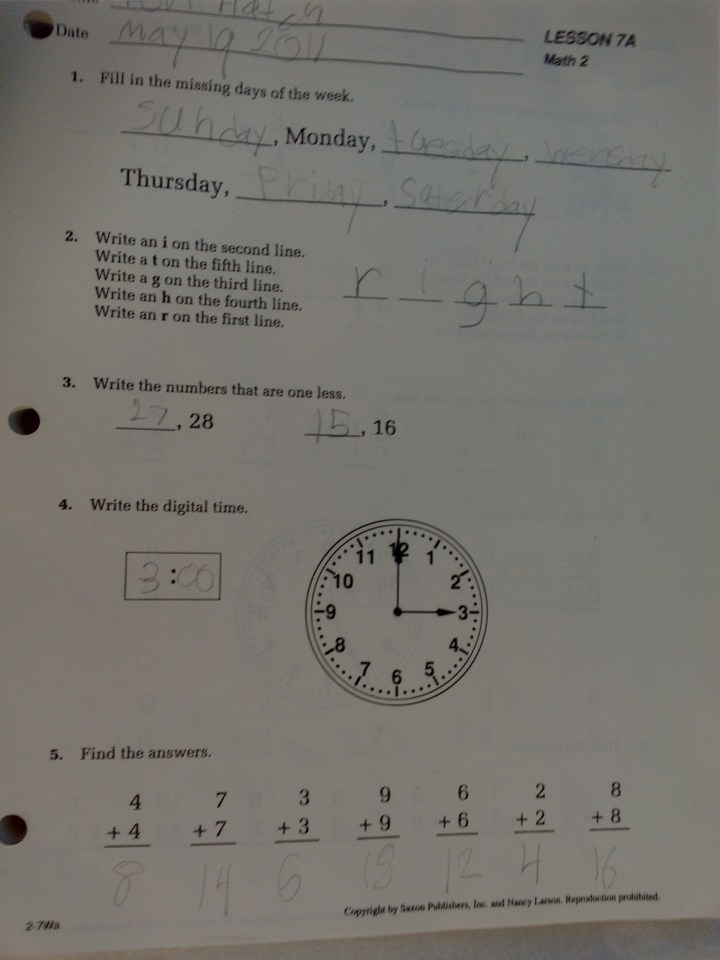 Hatch
Date May 19 2011
LESSON 7A
Math 2
1. Fill in the missing days of the week.
Sunday, Monday, tuesday, wensday
Thursday, Friday, Saterday
2. Write an i on the second line.
Write a t on the fifth line.
Write a g on the third line.
Write an h on the fourth line.
Write an r on the first line.
r i g h t
3. Write the numbers that are one less.
27, 28 15, 16
4. Write the digital time.
3:00
12
11 1
10 2
9 3
8 4
7 5
6
5. Find the answers.
4 7 3 9 6 2 8
+ 4 + 7 + 3 + 9 + 6 + 2 + 8
8 14 6 18 12 4 16
Copyright by Saxon Publishers, Inc. and Nancy Larson. Reproduction prohibited.
2-7Wa